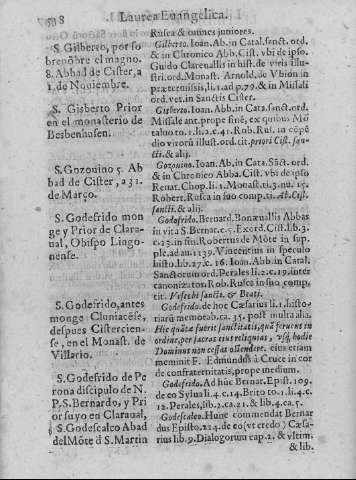 598
Laurea Euangelica.
S. Gilberto, por so
brenõbre el magno.
8. Abbad de Cister, a
1. de Nouiembre.
S. Gisberto Prior
en el monasterio de
Besbenhusen.
S. Gozouino 5. Ab
bad de Cister, a 31.
de Março.
S. Godefrido mon
ge y Prior de Clara-
ual, Obispo Lingo-
nense.
S. Godefrido, antes
monge Cluniacẽse,
despues Cistercien-
se, en el Monast. de
Villario.
S. Godefrido de Pe
rona discipulo de N.
P. S. Bernardo, y Pri
or suyo en Claraual,
S. Godescalco Abad
del Mõte đ S. Martin
Rusca & omnes juniores.
Gilberto. Ioan. Ab. in Catal. sanct. ord.
& in Chronico Abb. Cist. vbi de ipso
Guido Clareuallis in hist. de viris illu-
stri. ord. Monast. Arnold. de Vbion in
præetermissis, li. 1. ad p. 79. & in Missali
ord. vet. in Sanctis Cister.
Gisberto. Ioan. Abb. in Cata. sanct. ord.
Missale ant. prope finẽ, ex quibus Mó
taluo to. 1. li. 2. c. 41. Rob. Rus. in cõpẽ
dio virorũ illust. ord. tit. priori Cist. san-
cti, & alij.
Gozouino. Ioan. Ab. in Cata. Sãct. ord.
& in Chronico Abba. Cist. vbi de ipso
Renat. Chop. li. 1. Monast. ti. 3. nu. 15.
Robert. Rusca in suo comp. ti. Ab. Cist.
sancti. & alij.
Godofrido. Bernard. Bonæuallis Abbas
in vita S. Bernar. c. 5. Exord. Cist. lib. 3.
c. 15. in fiu. Robertus de Mõte in sup-
ple. ad an. 1139. Vincentius in speculo
histo. lib. 27. c. 16. Ioan. Abb. in Catal.
Sanctorum ord. Perales li. 2. c. 19. inter
canoniz. tos. Rob. Rusca in suo comp.
tit. Vescobi sancti. & Beati.
Godefrido. de hoc Cæsarius li. 1. histo-
riarũ memorab. ca. 35. post multa alia.
Hic quãtæ fuerit sanctitatis, quã feruens in
ordine, per sacras eius reliquias, vsq; hodie
Dominus non cessat ostendere. eius etiam
meminit F. Edmundus à Cruce in cor
de confraternitatis, prope medium.
Godefrido. Ad hũc Bernar. Epist. 109.
de eo Sylua li. 4. c. 14. Brito to. 1. li. 4. c.
12. Perales, lib. 2. ca. 21. & lib. 4. ca. 5.
Godescalco. Hunc commendat Bernar
dus Episto. 214. de eo (vt credo) Cæsa-
rius lib. 9. Dialogorum cap. 2. & vltim.
& lib.